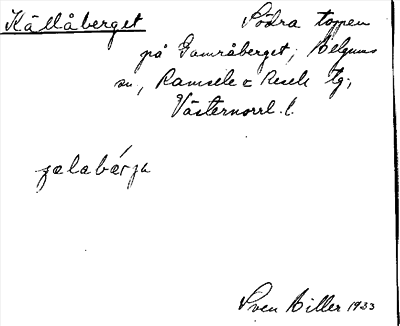 Källåberget
Södra toppen
på Gamråberget; Helgums
sn, Ramsele o Resele tg.,
Västernorrl. l.
Sven Hiller 1933